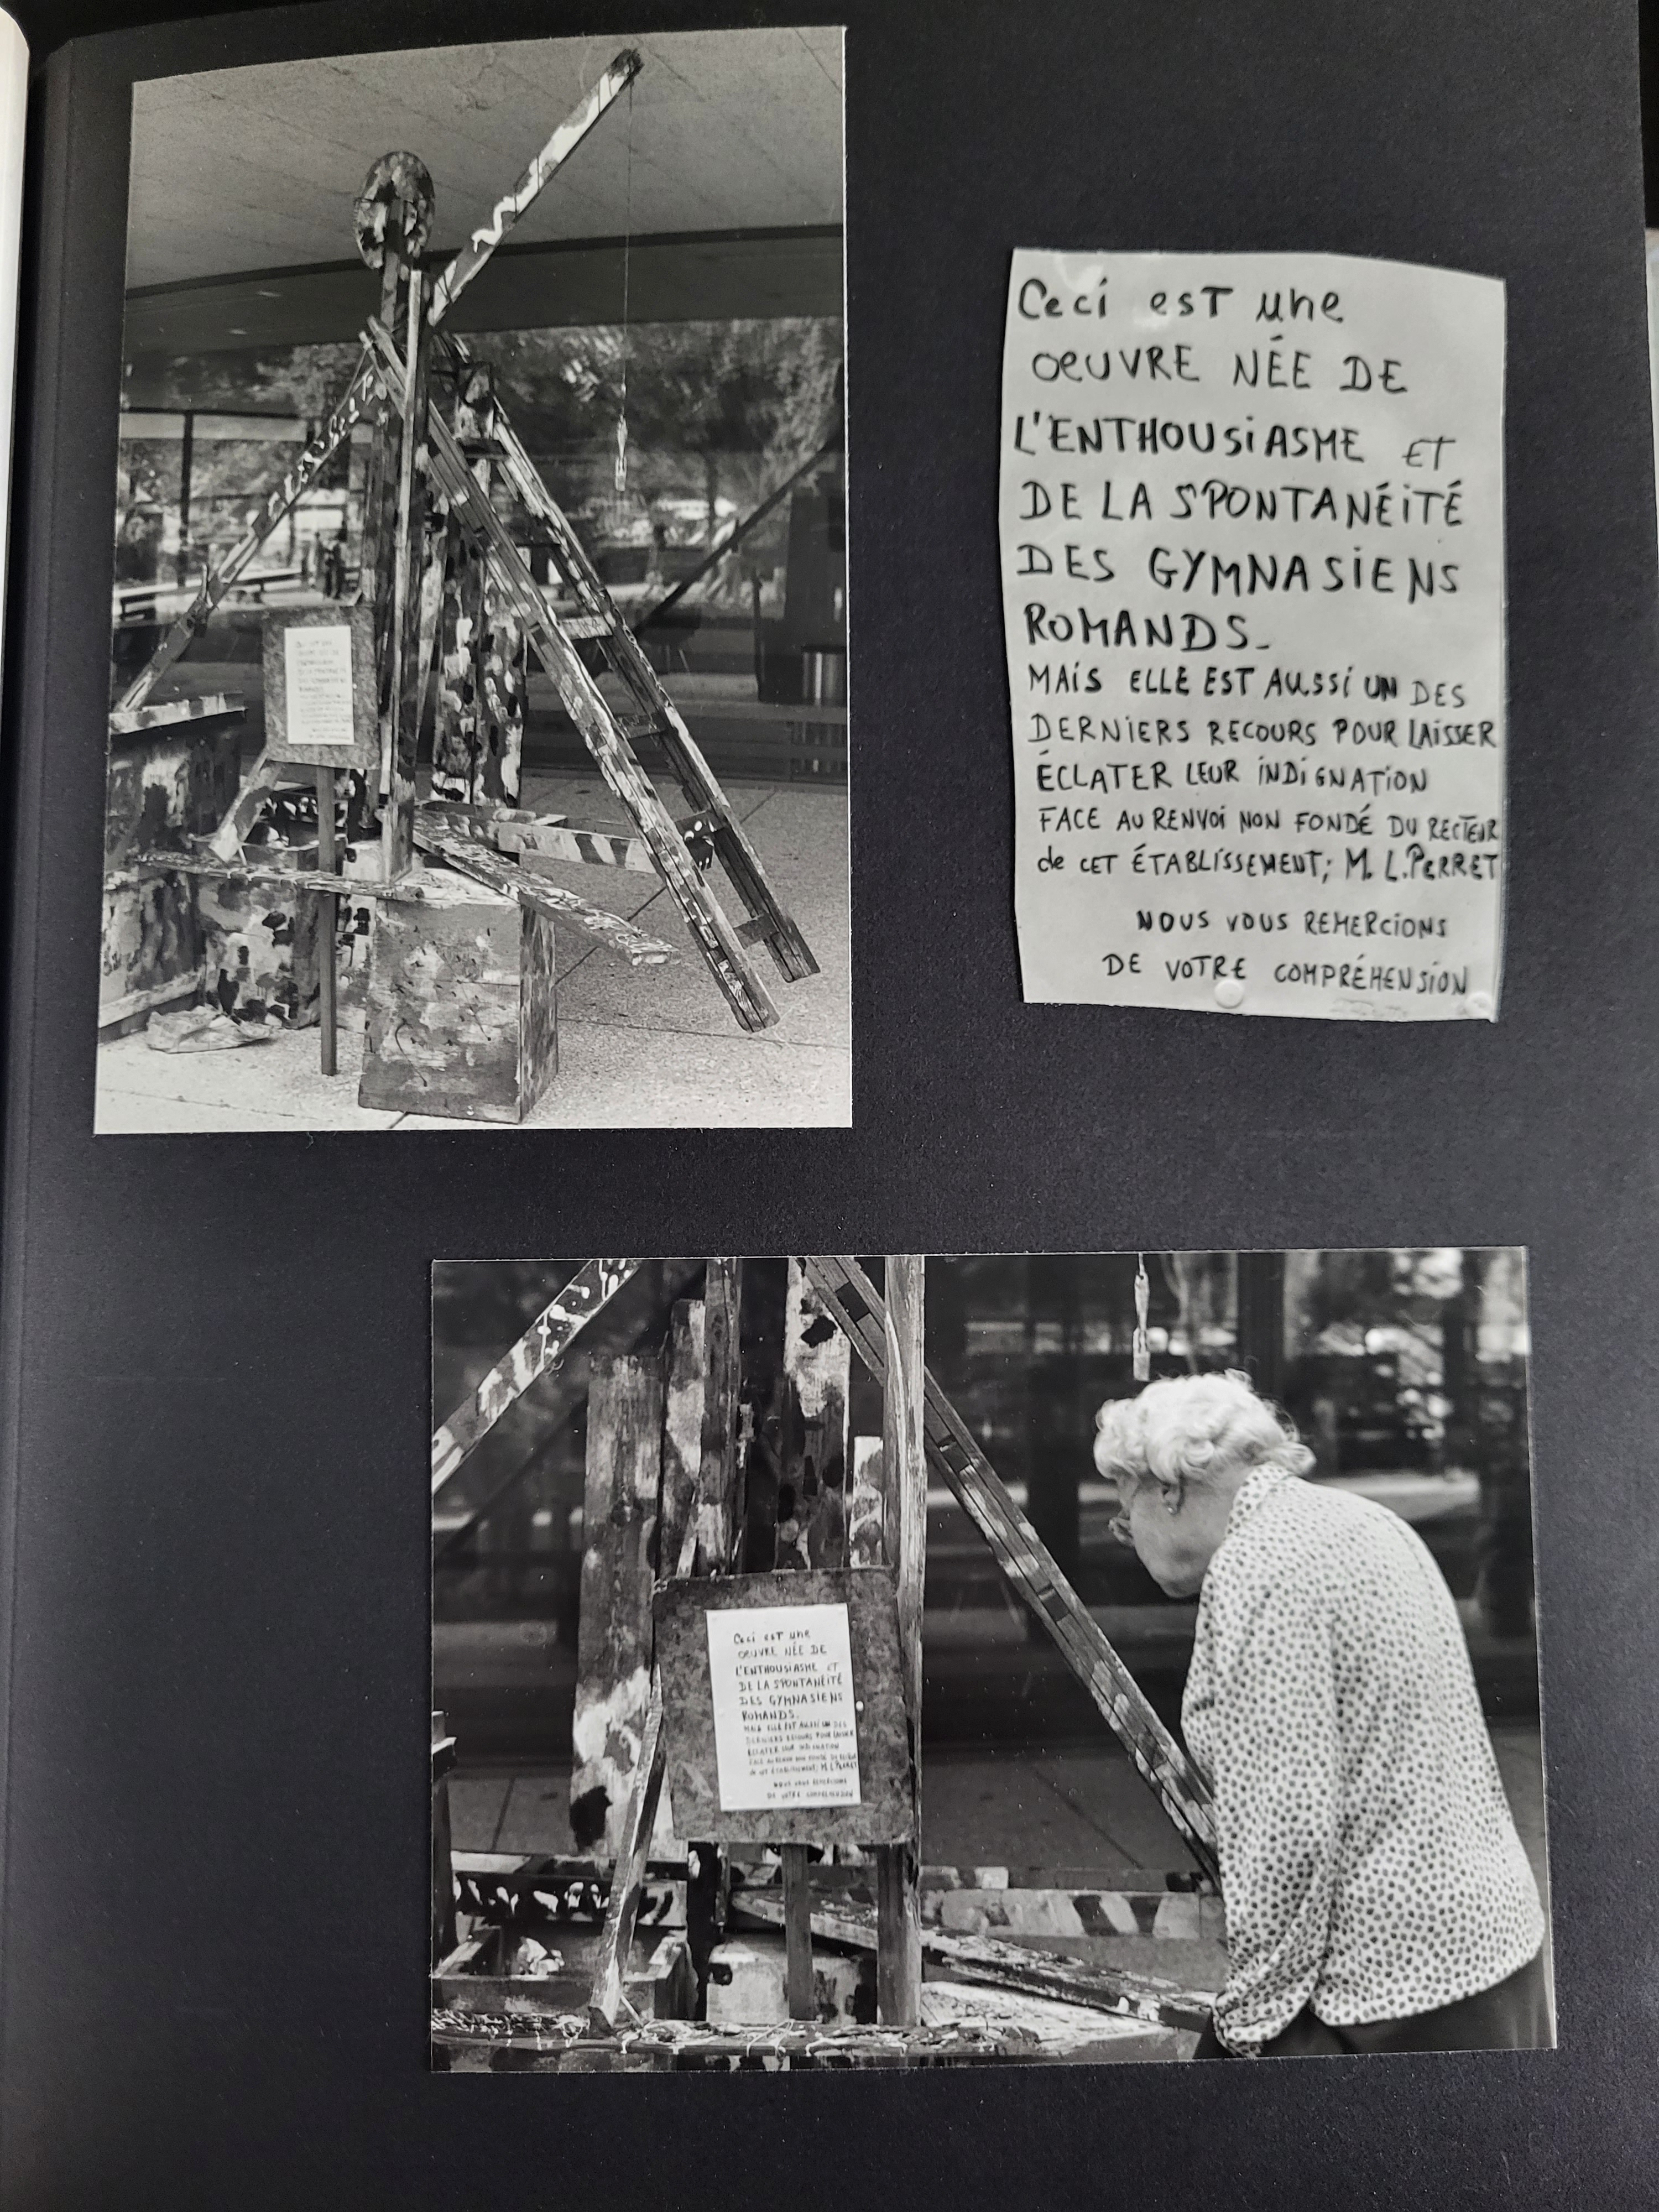 Ceci est une
OEUVRE NÉE DE
L'ENTHOUSIASME ET
DE LA SPONTANÉITÉ
DES GYMNASIENS
ROMANDS_
MAIS ELLE EST AUSSI UN DES
DERNIERS RECOURS POUR LAISSER
ÉCLATER LEUR INDIGNATION
FACE AU RENVOI NON FONDÉ DU RECTEUR
de CET ÉTABLISSEMENT; M. L. PERRET
NOUS VOUS REMERCIONS
DE VOTRE COMPRÉHENSION
Ceci est une
OEUVRE NÉE DE
L'ENTHOUSIASME ET
DE LA SPONTANÉITÉ
DES GYMNASIENS
ROMANDS_
MAIS ELLE EST AUSSI UN DES
DERNIERS RECOURS POUR LAISSER
ÉCLATER LEUR INDIGNATION
FACE AU RENVOI NON FONDÉ DU RECTEUR
de CET ÉTABLISSEMENT; M. L. PERRET
NOUS VOUS REMERCIONS
DE VOTRE COMPRÉHENSION